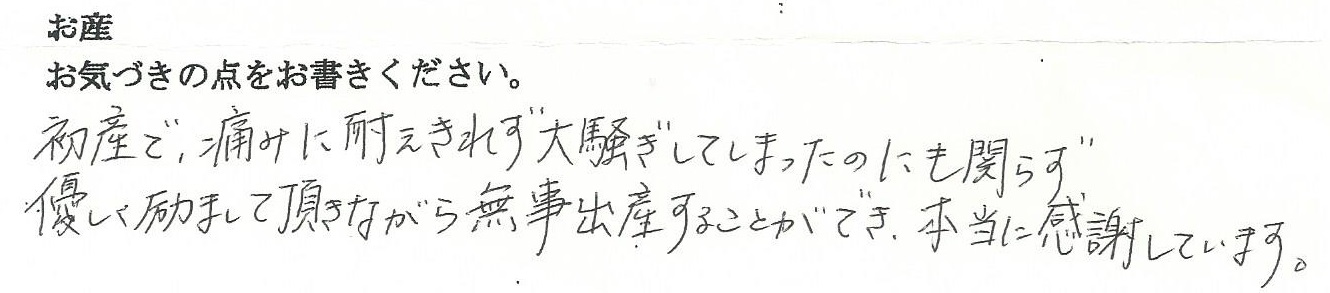 お産
お気づきの点をお書きください。
初産で、痛みに耐えきれず大騒ぎしてしまったのにも関らず
優しく励まして頂きながら無事出産することができ、本当に感謝しています。